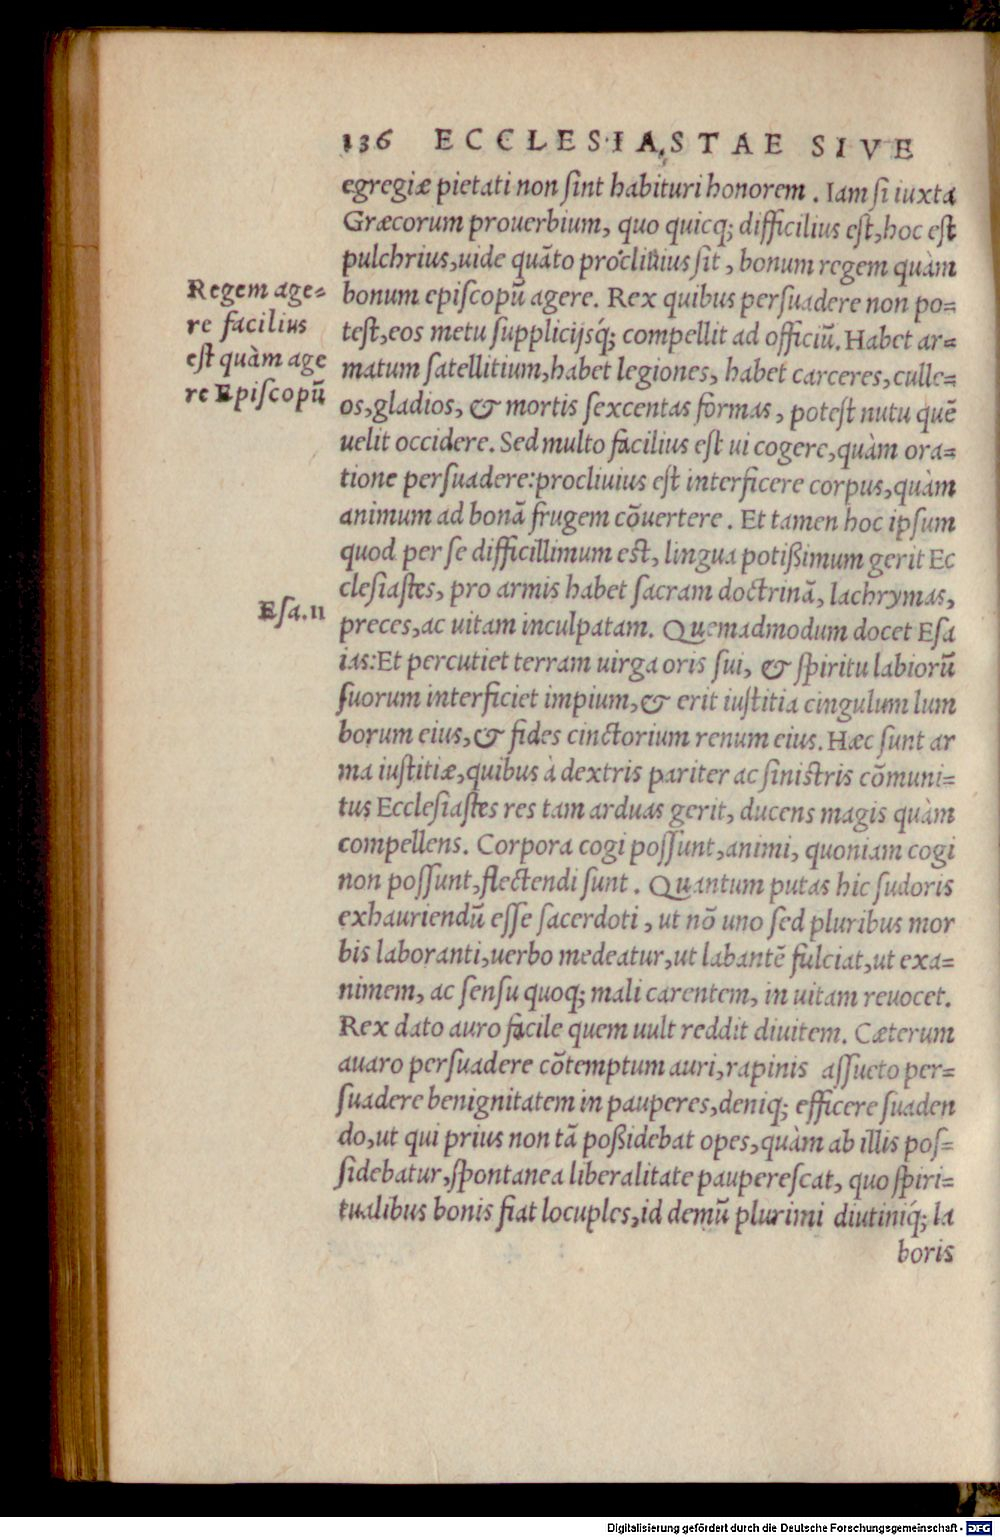 136 ECCLESIASTAE SIVE
egregiæ pietati non ſint habituri honorem. Iam ſi iuxta
Græcorum prouerbium, quo quicq; difficilius eſt, hoc eſt
pulchrius, uide quãto procliuius ſit, bonum regem quàm
Regem age=
re facilius
eſt quàm age
re Epiſcopũ
bonum epiſcopũ agere. Rex quibus perſuadere non po=
teſt, eos metu ſupplicijsq́; compellit ad officiũ. Habet ar=
matum ſatellitium, habet legiones, habet carceres, culle=
os, gladios, & mortis ſexcentas formas, poteſt nutu quẽ
uelit occidere. Sed multo facilius eſt ui cogere, quàm ora=
tione perſuadere: procliuius eſt interficere corpus, quàm
animum ad bonã frugem cõuertere. Et tamen hoc ipſum
quod per ſe difficillimum est, lingua potißimum gerit Ec
cleſiaſtes, pro armis habet ſacram doctrinã, lachrymas,
Eſa. 11
preces, ac uitam inculpatam. Quemadmodum docet Eſa
ias: Et percutiet terram uirga oris ſui, & ſpiritu labiorũ
ſuorum interficiet impium, & erit iuſtitia cingulum lum
borum eius, & fides cinctorium renum eius. Hæc ſunt ar
ma iuſtitiæ, quibus à dextris pariter ac ſinistris cõmuni=
tus Eccleſiaſtes res tam arduas gerit, ducens magis quàm
compellens. Corpora cogi poſſunt, animi, quoniam cogi
non poſſunt, flectendi ſunt. Quantum putas hic ſudoris
exhauriendũ eſſe ſacerdoti, ut nõ uno ſed pluribus mor
bis laboranti, uerbo medeatur, ut labantẽ fulciat, ut exa=
nimem, ac ſenſu quoq; mali carentem, in uitam reuocet.
Rex dato auro facile quem uult reddit diuitem. Cæterum
auaro perſuadere cõtemptum auri, rapinis aſſueto per=
ſuadere benignitatem in pauperes, deniq; efficere ſuaden
do, ut qui prius non tã poßidebat opes, quàm ab illis poſ=
ſidebatur, ſpontanea liberalitate paupereſcat, quo ſpiri=
tualibus bonis fiat locuples, id demũ plurimi diutiniq́; la
boris
Digitalisierung gefördert durch die Deutsche Forschungsgemeinschaft - DFG